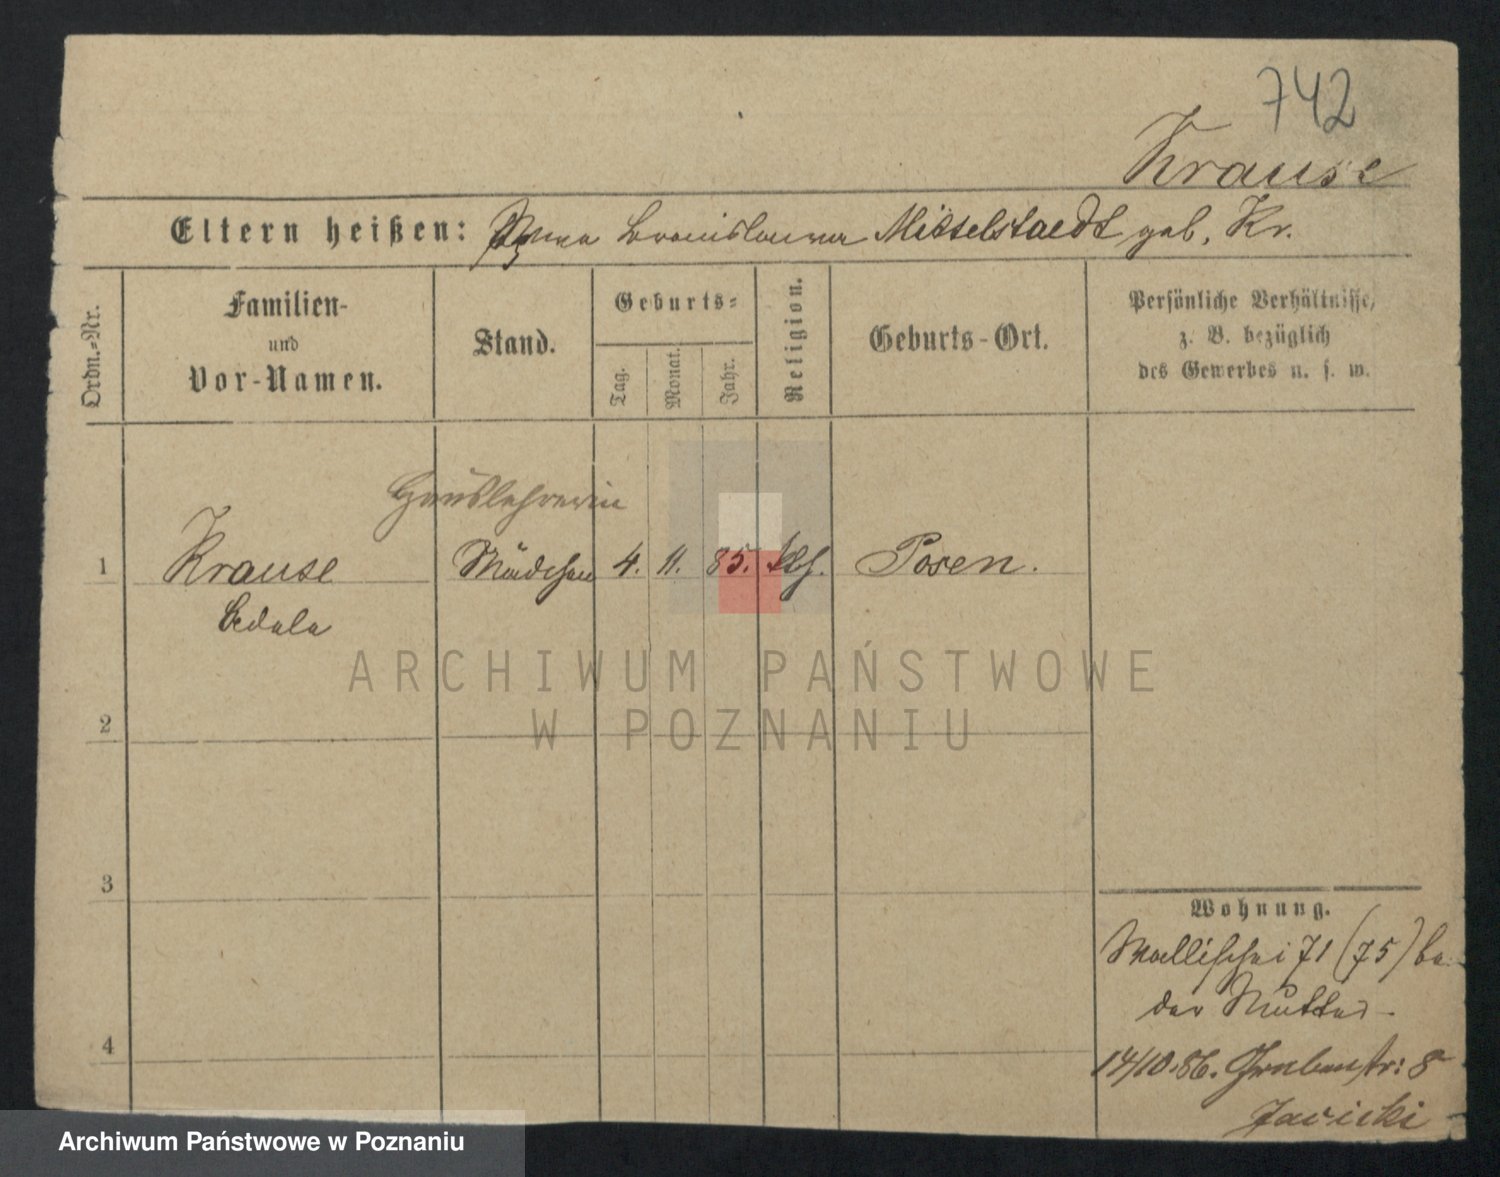 742
Krause
Eltern heißen: Bronislawa Mittelstaedt geb. Kr.
Ordn.-Nr.
Familien-
und
Vor-Namen.
Stand.
Geburts-
Tag.
Monat.
Jahr.
Religion.
Geburts-Ort.
Persönliche Verhältnisse,
z. B. bezüglich
des Gewerbes u. s. w.
Hauslehrerin
1 Krause Mädchen 4. 11. 85. kth. Posen.
2
3
4
Wohnung.
Wallischei 71 (75) be.
der Mutter
14/10.86. Grabenstr: 8
ARCHIWUM PAŃSTWOWE
W POZNANIU
Archiwum Państwowe w Poznaniu